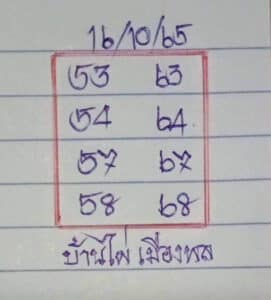 16/10/65
53 63
54 64
57 67
58 68
บ้านไผ่ เมืองพล